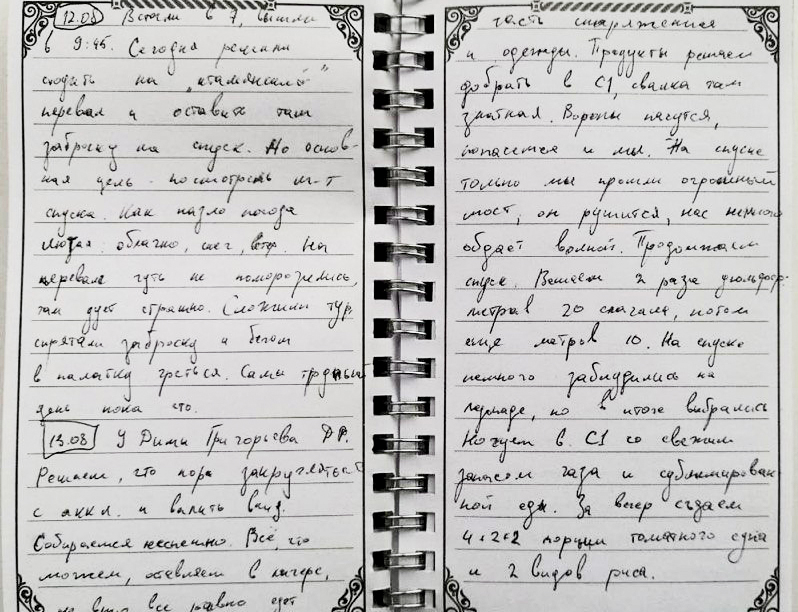 12.08 Встали в 7, вышли
в 9:45. Сегодня решили
сходить на "италянский"
перевал и оставить там
заброску на спуск. Но основ-
ная цель - посмотреть м-т
спуска. Как назло погода
лютая: облачно, снег, ветер. На
перевале чуть не поморозились,
там дует страшно. Сложили тур,
спрятали заброску и бегом
в палатку греться. Самый трудный
день пока что.
13.08 У Димы Григорьева ДР.
Решаем, что пора закругляться
с аккл. и валить вниз.
Собираемся неспешно. Всё, что
можем, оставляем в лагере,
все равно
часть снаряжения
и одежды. Продукты решаем
добрать в С1, свалка там
знатная. Вороны пасутся,
попасемся и мы. На спуске
только мы прошли огромный
мост, он рушится, нас немного
обдает волной. Продолжаем
спуск. Вешаем 2 раза дюльфер
метров 20 сначала, потом
еще метров 10. На спуске
немного заблудились на
леднаде, но в итоге выбрались
Ночуем в С1 со свежим
запасом газа и сублимирован-
ной еды. За вечер съедаем
4+2+2 порции томатного супа
и 2 видов риса.